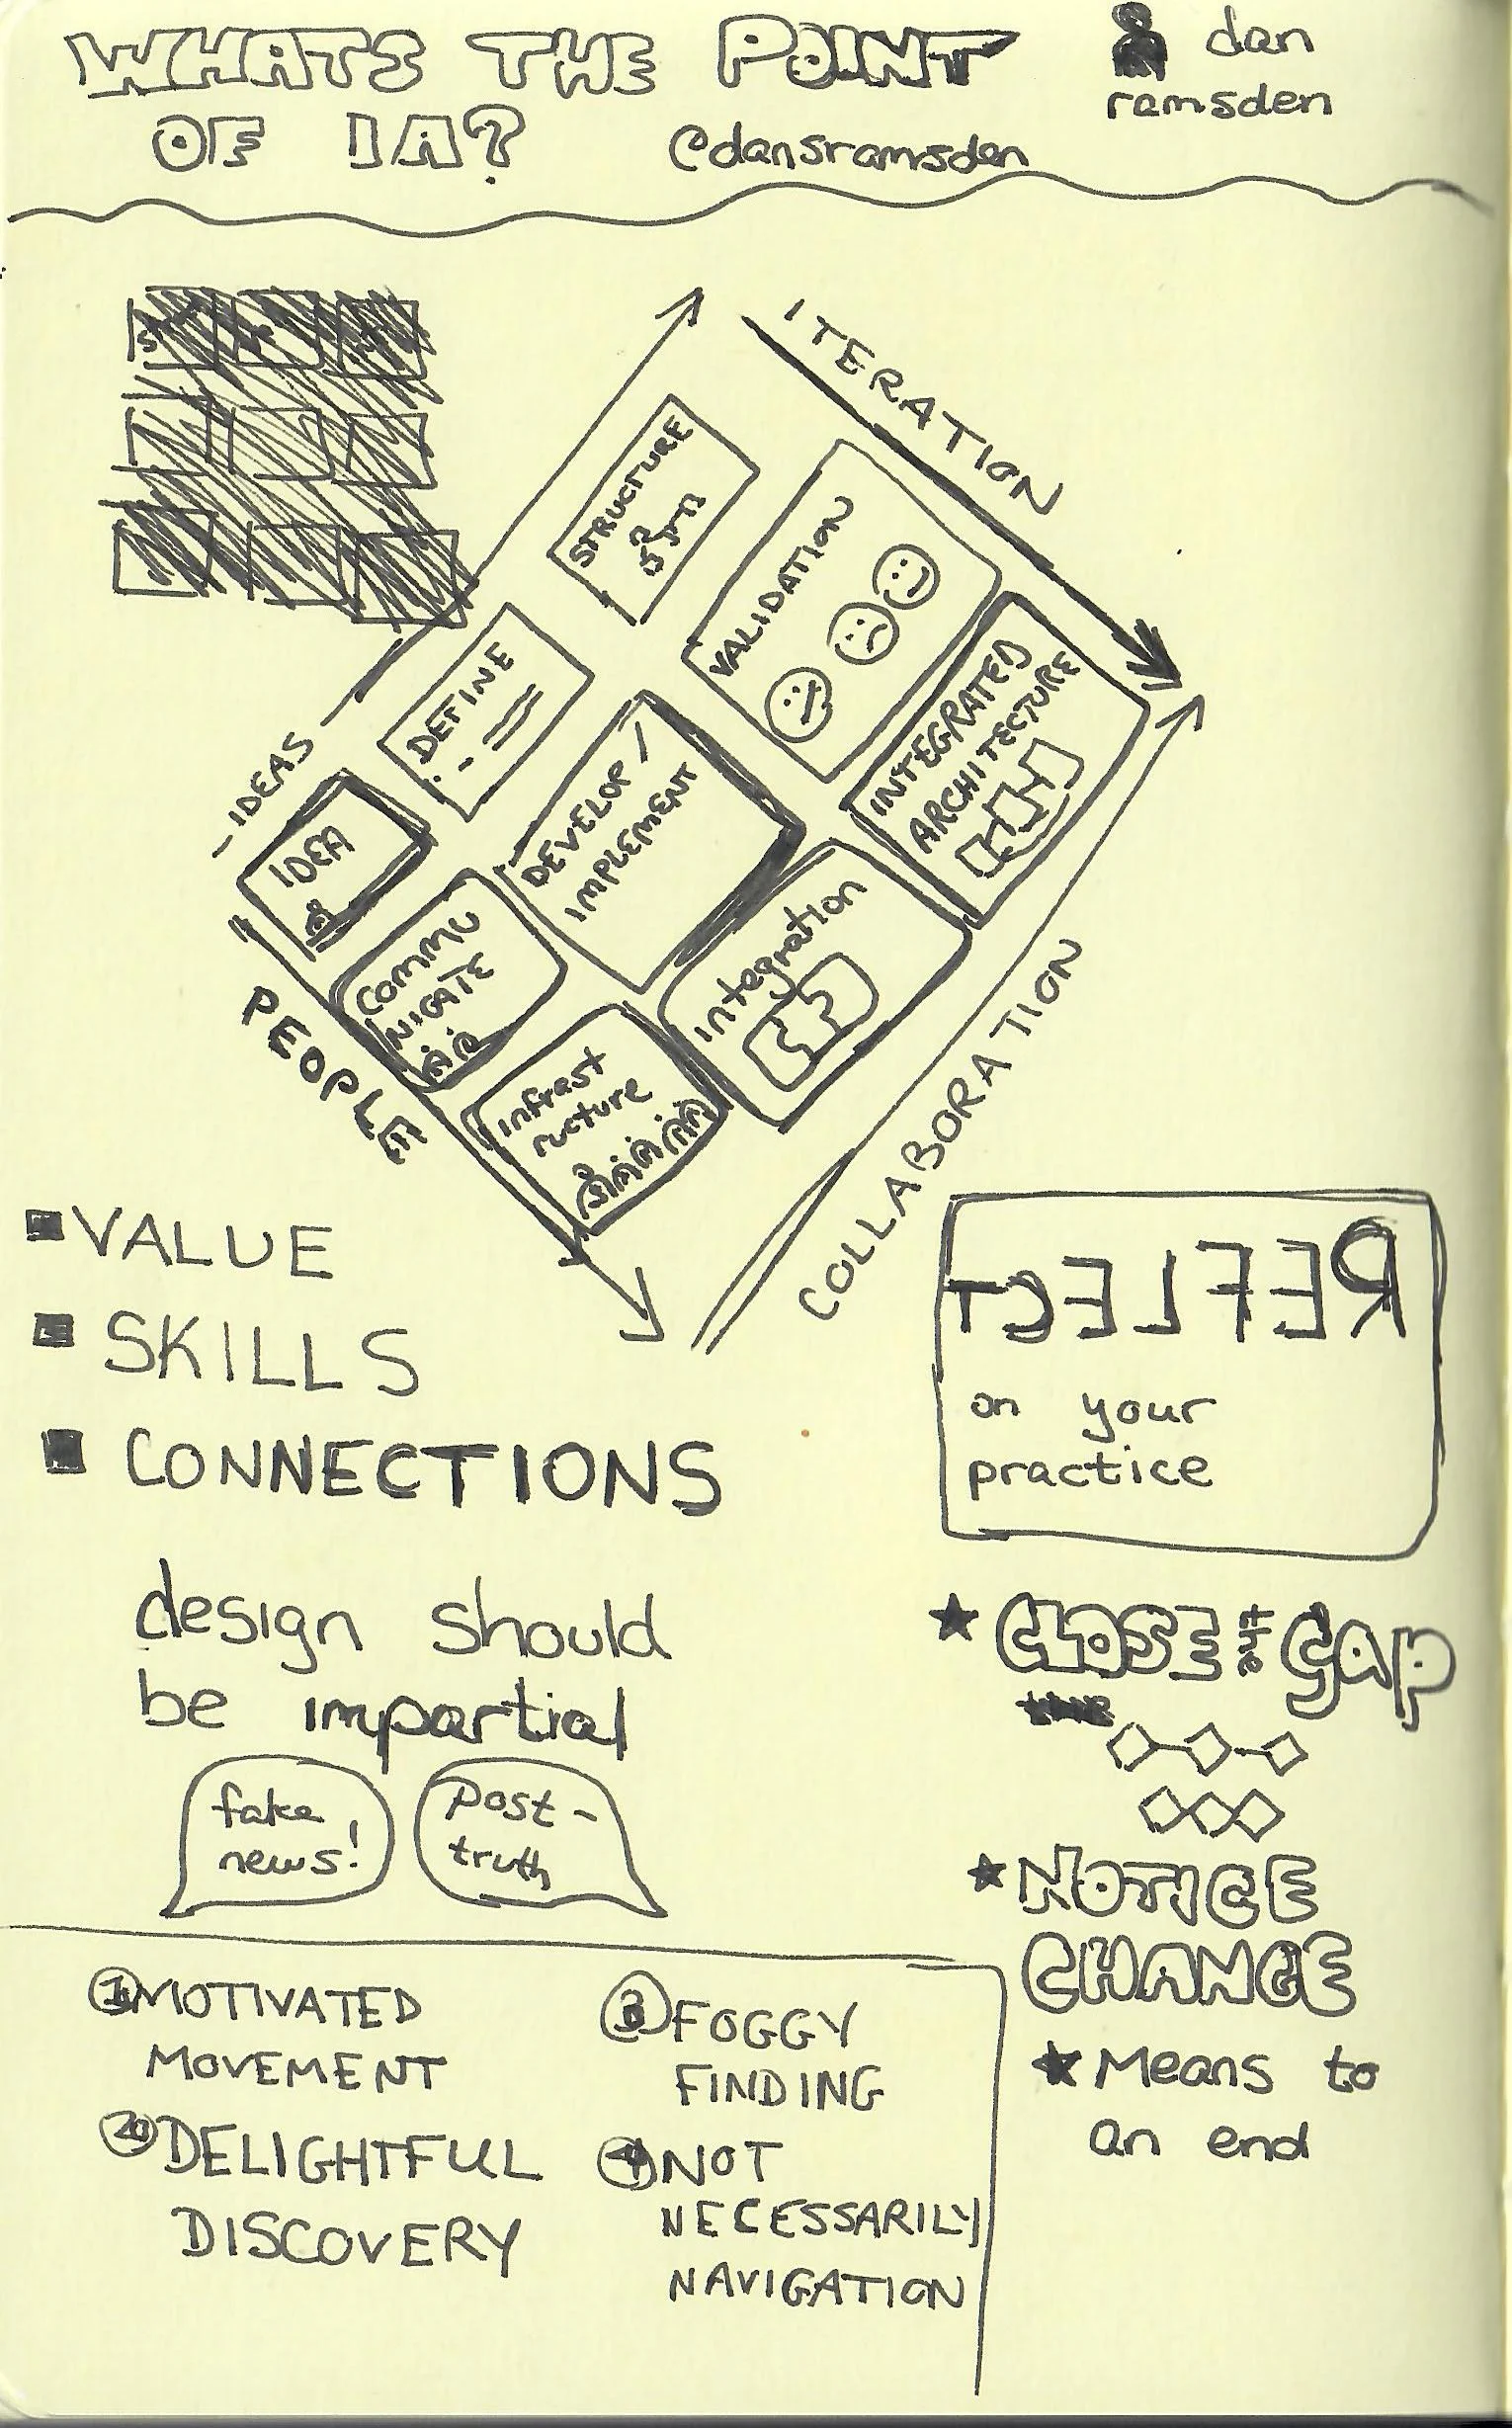 WHATS THE POINT
OF IA?
dan
ramsden
@dansramsden
ITERATION
IDEAS
PEOPLE
COLLABORATION
STRUCTURE
VALIDATION
INTEGRATED
ARCHITECTURE
DEFINE
DEVELOP /
IMPLEMENT
integration
IDEA
COMMU
NICATE
infrast
ructure
VALUE
SKILLS
CONNECTIONS
REFLECT
on your
practice
design should
be impartial
fake
news!
Post-
truth
★ CLOSE the gap
★ NOTICE
CHANGE
★ Means to
an end
1 MOTIVATED
MOVEMENT
2 DELIGHTFUL
DISCOVERY
3 FOGGY
FINDING
4 NOT
NECESSARILY
NAVIGATION